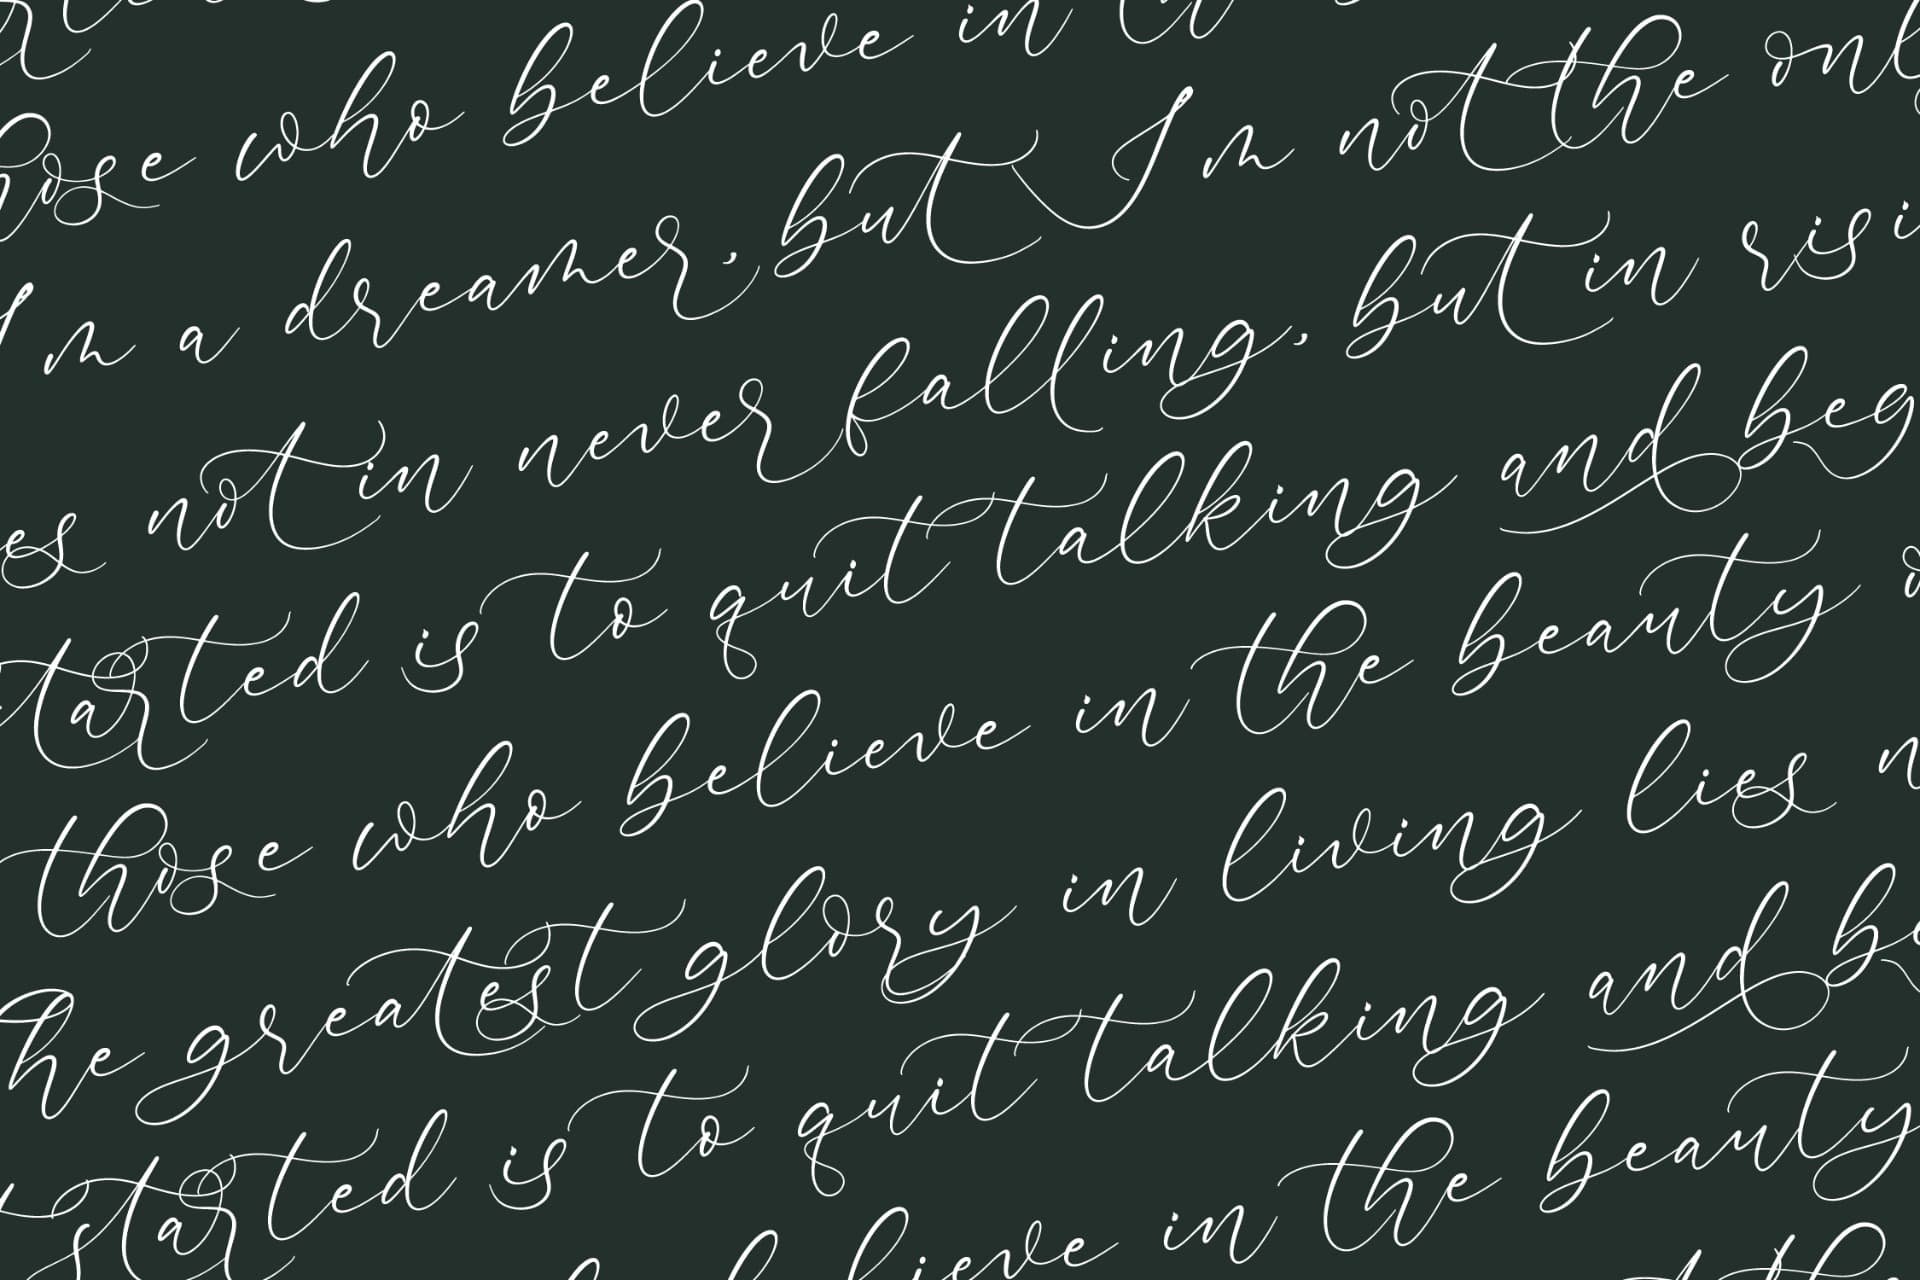 who believe in
I'm not the
I'm a dreamer, but
not in never falling, but in
started is to quit talking and
those who believe in the beauty
the greatest glory in living lies
started is to quit talking and
believe in the beauty